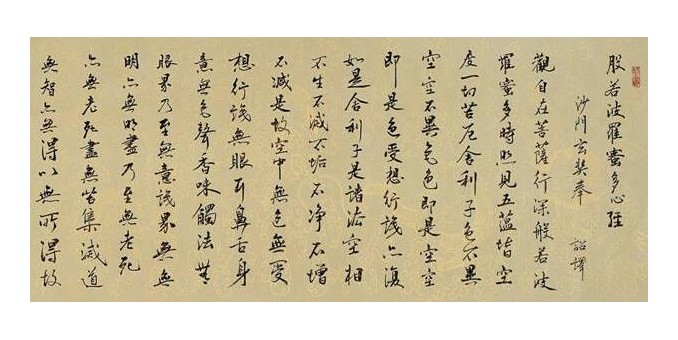 般若波羅蜜多心經
沙門玄奘奉 詔譯
觀自在菩薩行深般若波
羅蜜多時照見五蘊皆空
度一切苦厄舍利子色不異
空空不異色色即是空空
即是色受想行識亦復
如是舍利子是諸法空相
不生不滅不垢不净不增
不減是故空中無色無受
想行識無眼耳鼻舌身
意無色聲香味觸法無
眼界乃至無意識界無無
明亦無無明盡乃至無老死
亦無老死盡無苦集滅道
無智亦無得以無所得故